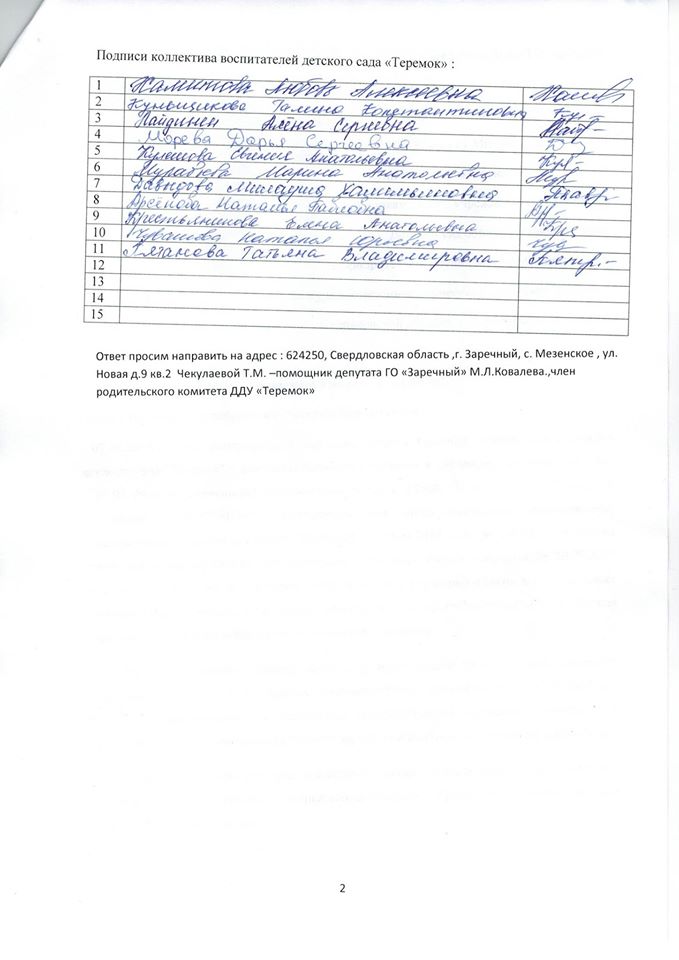 Подписи коллектива воспитателей детского сада «Теремок» :
1 Любовь Алексеевна
2 Кунщикова Галина Константиновна
3 Пайдинен Алёна Сергеевна
4 Морева Дарья Сергеевна
5 Кулешова Евгения Анатольевна
6 Марина Анатольевна
7 Давыдова
8 Наталья
9 Крестьянникова Елена Анатольевна
10 Чувашова Наталья Юрьевна
11 Татьяна Владимировна
12
13
14
15
Ответ просим направить на адрес : 624250, Свердловская область ,г. Заречный, с. Мезенское , ул.
Новая д.9 кв.2 Чекулаевой Т.М. –помощник депутата ГО «Заречный» М.Л.Ковалева.,член
родительского комитета ДДУ «Теремок»
2